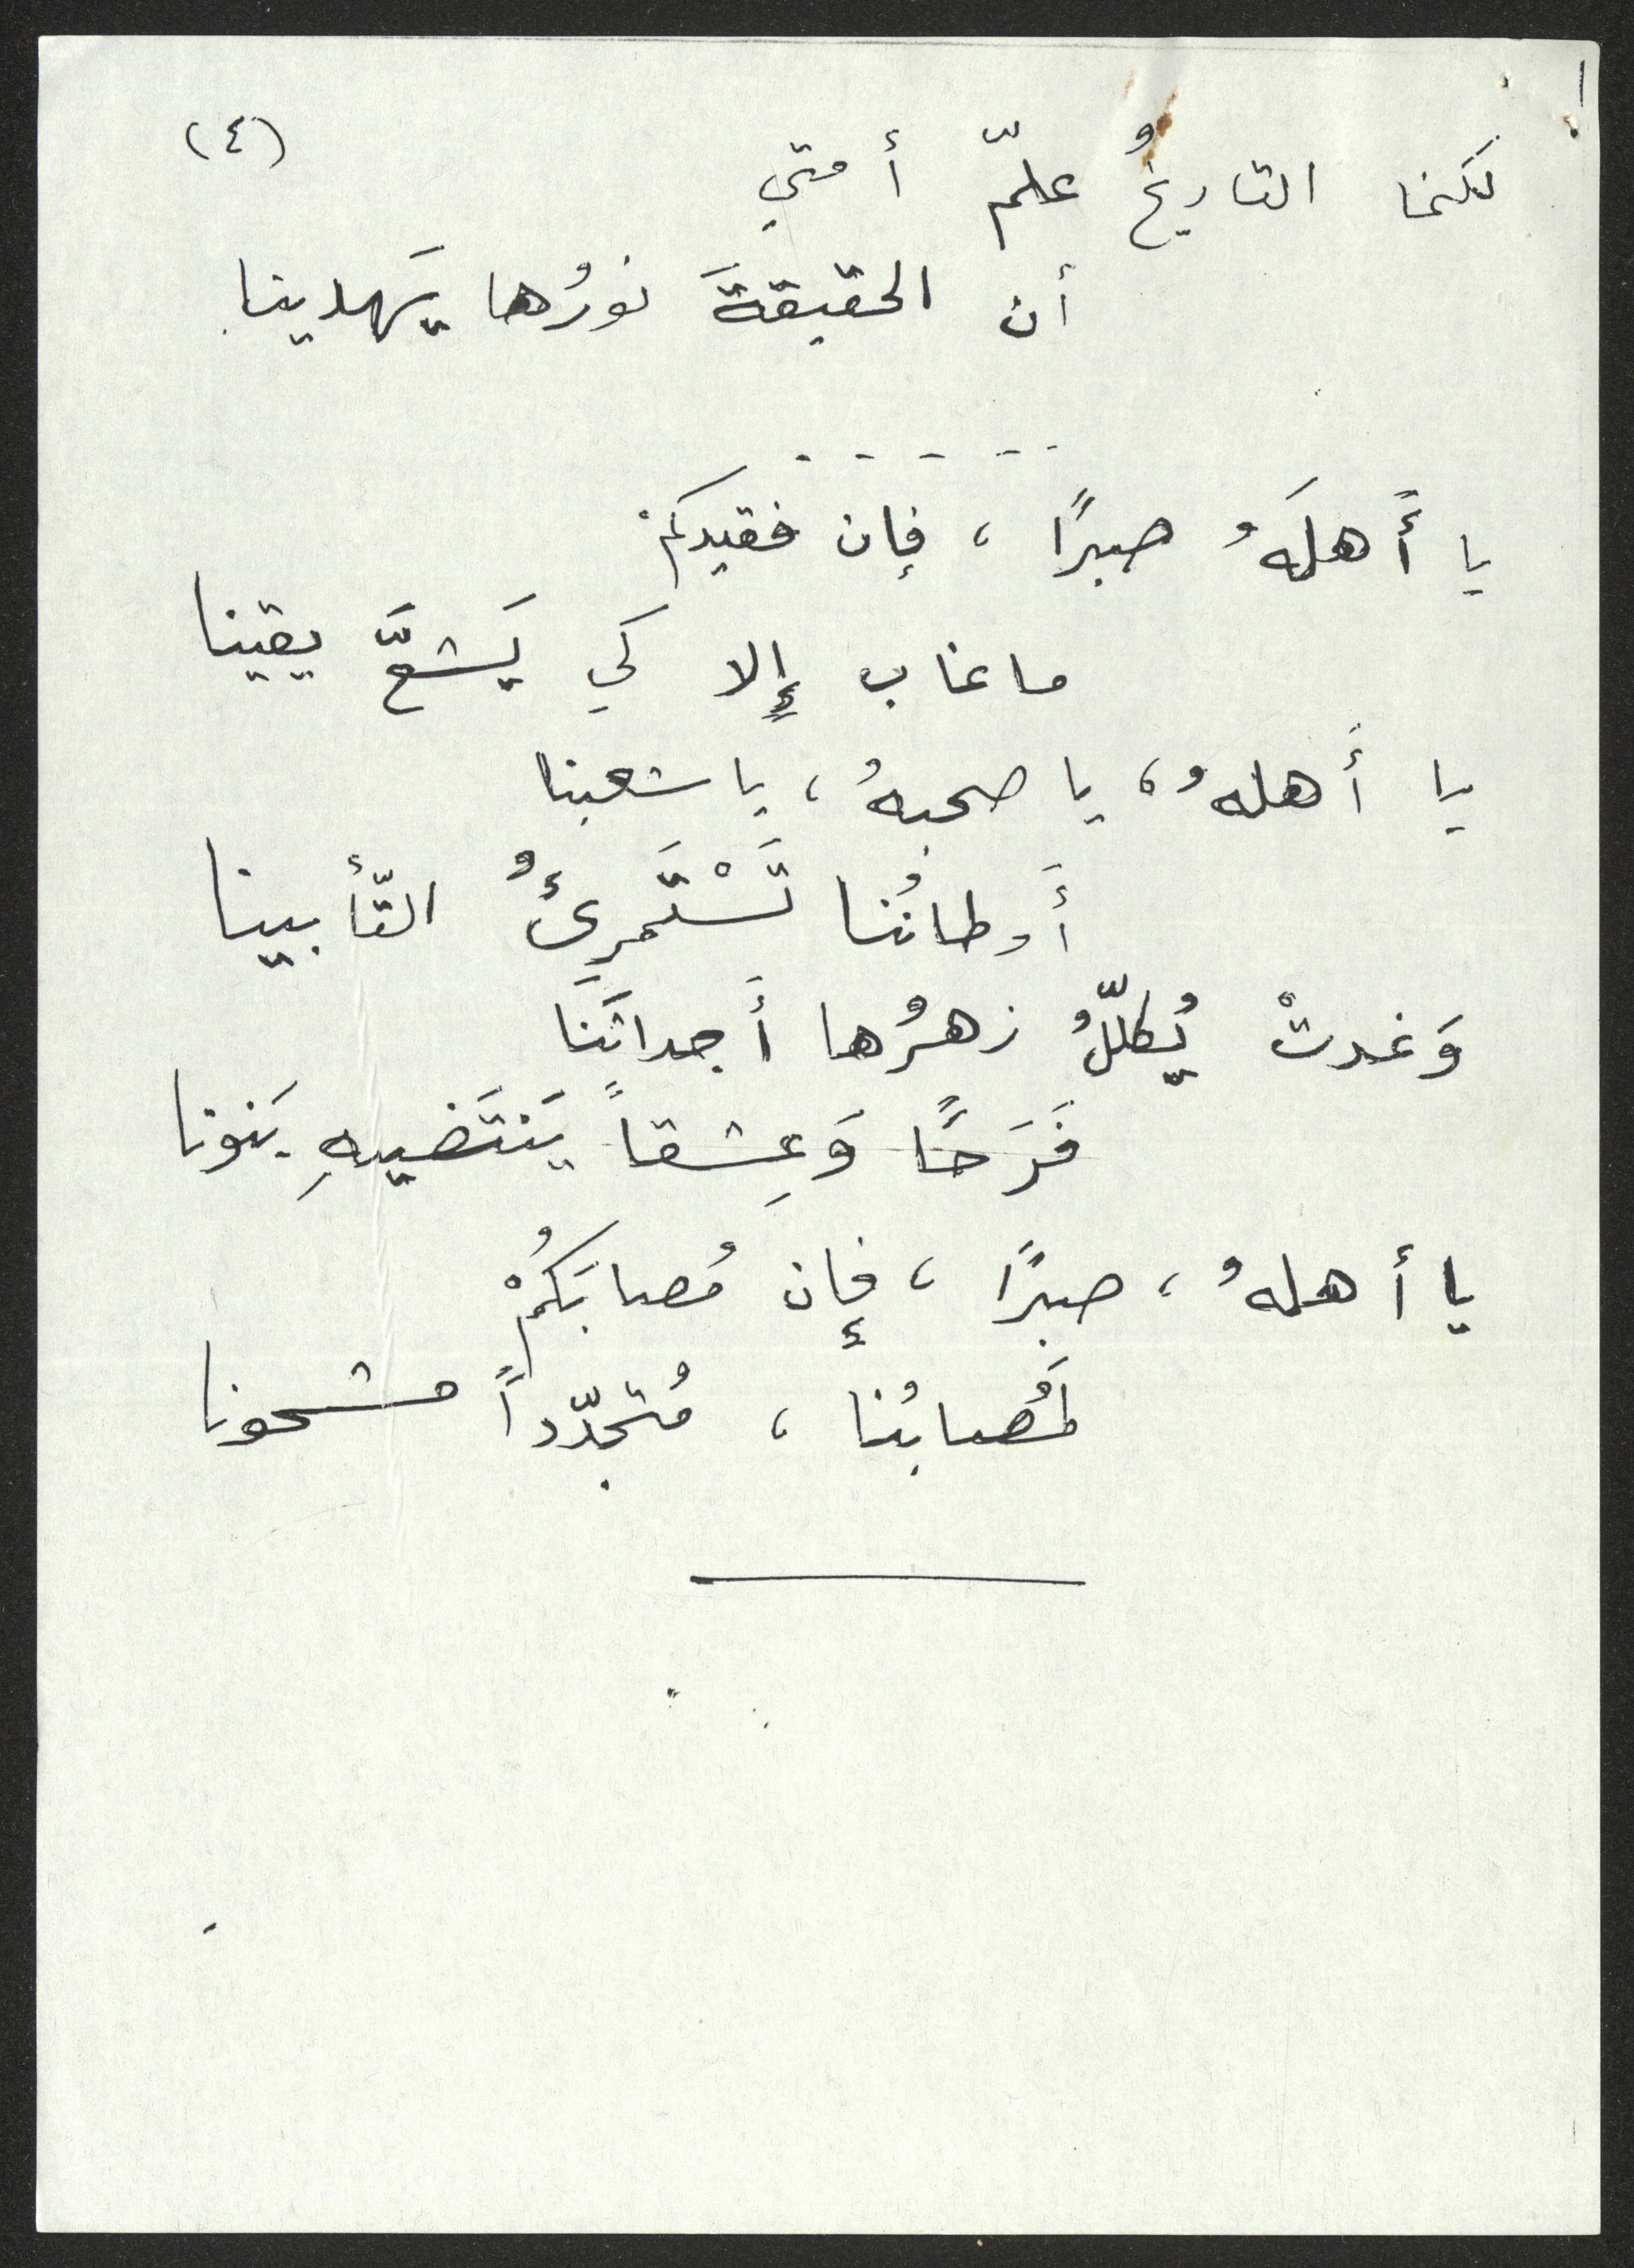 (٤)
لكنما التاريخُ علّم أمتي
أن الحقيقةَ نورُها يَهدينا
يا أَهلَهُ صبرًا ، فإن فقيدكمْ
ما غاب إلا كي يَشعَّ يقينا
يا أَهلهُ ، يا صحبهُ ، يا شعبنا
أَوطانُنا تَسْتَمرِئُ التّأبينا
وَغدتْ يُكلّلُ زهرُها أَجداثَنا
فَرَحًا وَعِشقاً يَنتَضيهِ بَنونا
يا أهلهُ ، صبرًا ، فإن مُصابَكُمْ
لَمُصابُنا ، مُتجدّداً مشحونا